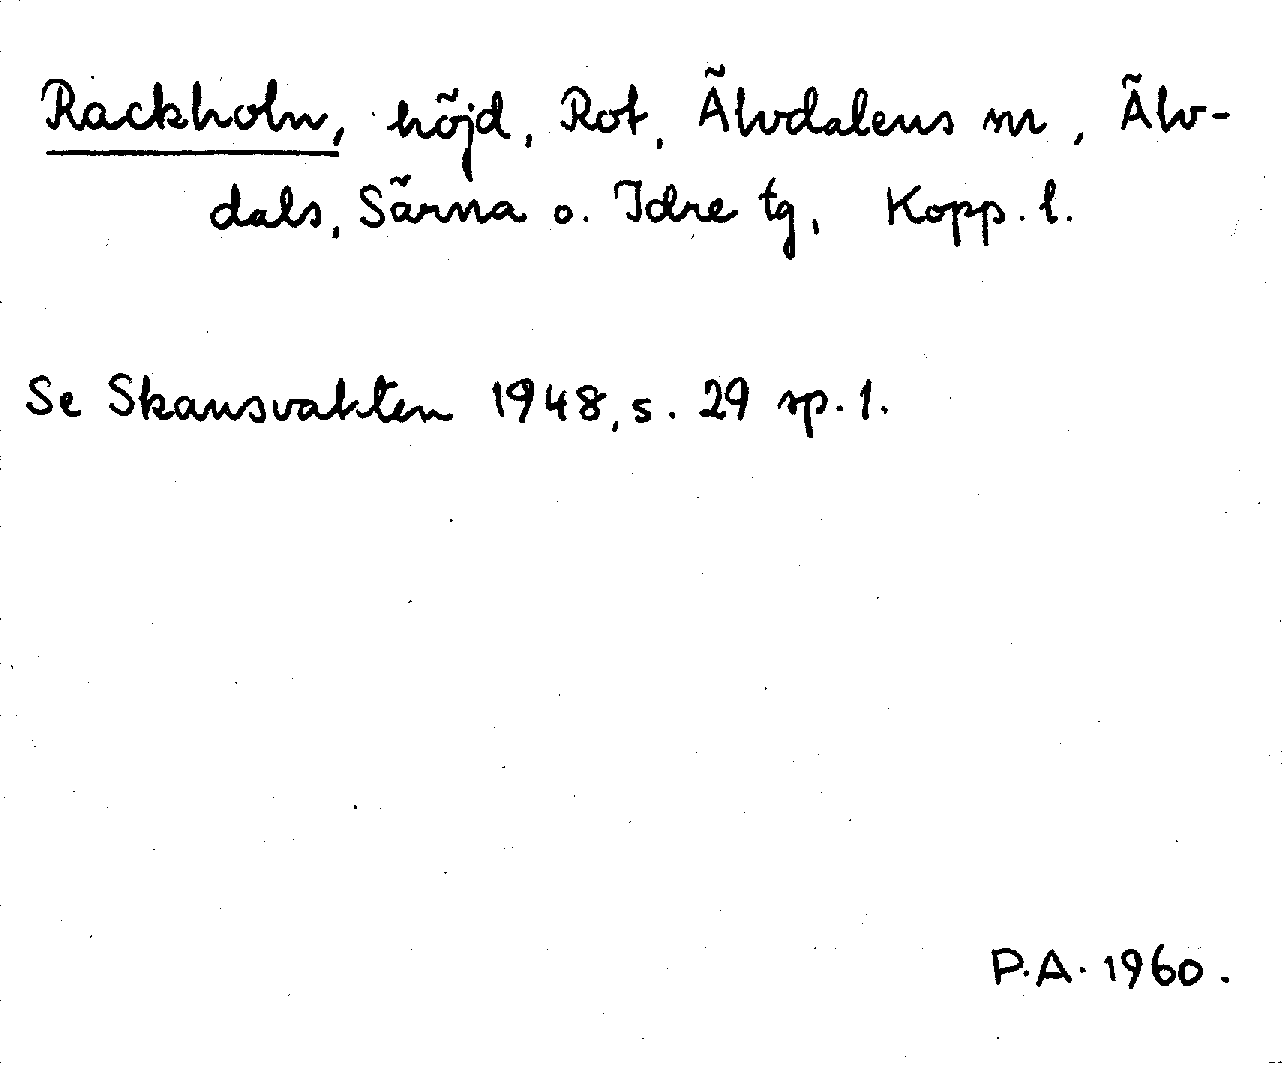 Rackholn, höjd, Rot, Älvdalens m, Älv-
dals, Särna o. Idre tg, Kopp. l.
Se Skansvakten 1948, s. 29 sp. 1.
P.A. 1960.